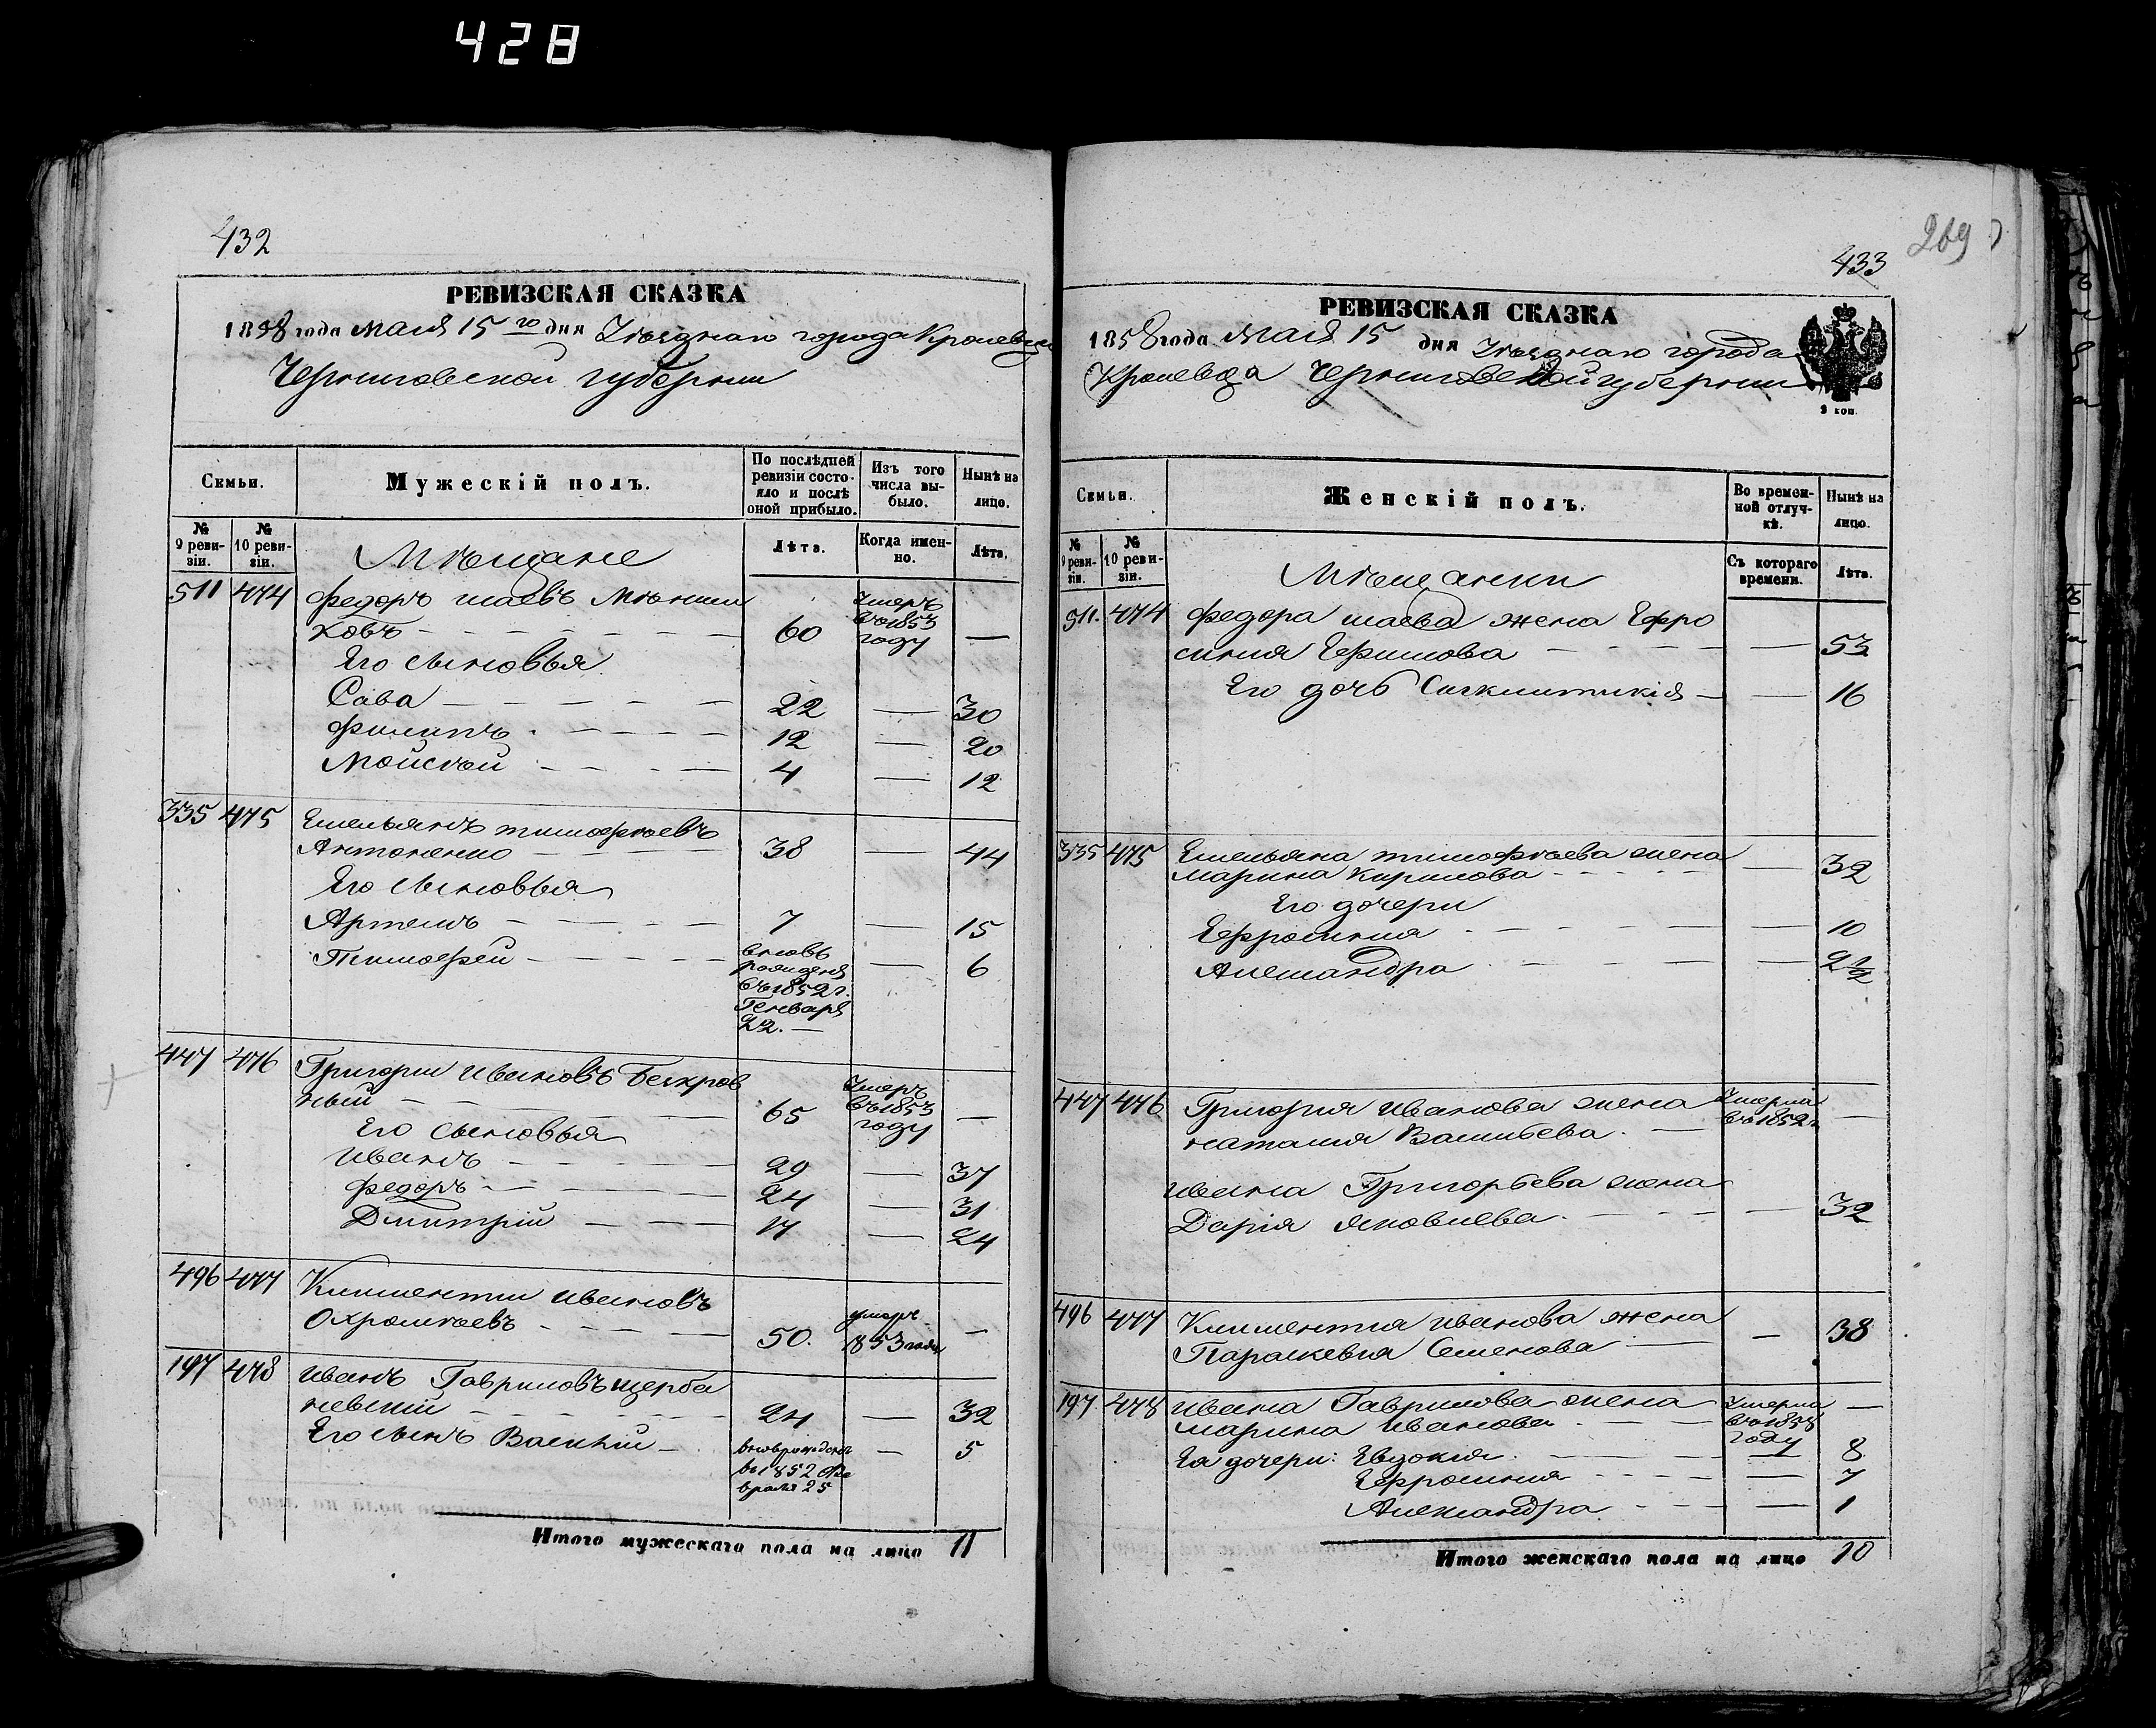 428
432
РЕВИЗСКАЯ СКАЗКА
1858 года Мая 15 го дня Уѣзднаго города Кролевца
Черниговской губернии
Семьи.
Мужескій полъ.
По послѣдней ревизіи состояло и послѣ оной прибыло.
Изъ того числа выбыло.
Нынѣ на лицо.
№ 9 ревизіи.
№ 10 ревизіи.
Мѣщане
Лѣта.
Когда именно.
Лѣта.
511 474 Федоръ Исаевъ
ховъ 60 Умеръ въ 1853 году —
Его сыновья
Сава 22 — 30
Филипъ 12 — 20
Мойсѣй 4 — 12
335 475 Емельянъ Тимофѣевъ
Антоненко 38 — 44
Его сыновья
Артемъ 7 — 15
Тимофей вновь рожденъ въ 1852 г. Генваря 22. — 6
447 476 Григорий Ивановъ Безкров
ный 65 Умеръ въ 1853 году —
Его сыновья
Иванъ 29 — 37
Федоръ 24 — 31
Дмитрій 17 — 24
496 477 Климентий Ивановъ
Охромѣевъ 50. умеръ 1853 года —
197 478 Иванъ Гавриловъ Щерба
невский 24 — 32
Его сынъ Василій вновь рожденъ въ 1852 Февраля 25 — 5
Итого мужескаго пола на лицо 11
269
433
РЕВИЗСКАЯ СКАЗКА
1858 года Мая 15 дня Уѣзднаго города
Кролевца Черниговской губернии
2 коп.
Семьи.
Женскій полъ.
Во временной отлучкѣ.
Нынѣ на лицо.
№ 9 ревизіи.
№ 10 ревизіи.
Мѣщанки
Съ котораго времени.
Лѣта.
511. 474 Федора Исаева жена Ефро
синия Ефимова — 53
Его дочь — 16
335 475 Емельяна Тимофѣева жена
Марина Кирилова — 32
Его дочери
Ефросиния — 10
Александра — 2 1/2
447 476 Григория Иванова жена Умерла въ 1852 г. —
Наталия Васильева
Ивана Григорьева жена
Дарія Яковлева — 32
496 477 Климентия Иванова жена
Параскевия Семенова — 38
197 478 Ивана Гаврилова жена Умерла —
Марина Иванова году
Его дочери: Евдокия — 8
Ефросиния — 7
Александра — 1
Итого женскаго пола на лицо 10